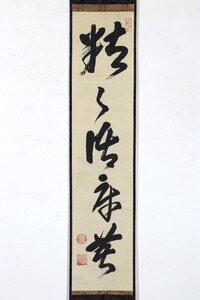 粒々皆辛苦